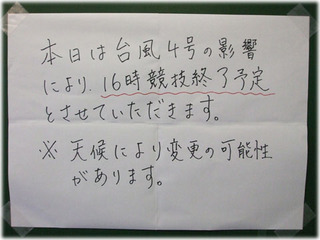 本日は台風4号の影響
により、16時競技終了予定
とさせていただきます。
※ 天候により変更の可能性
があります。